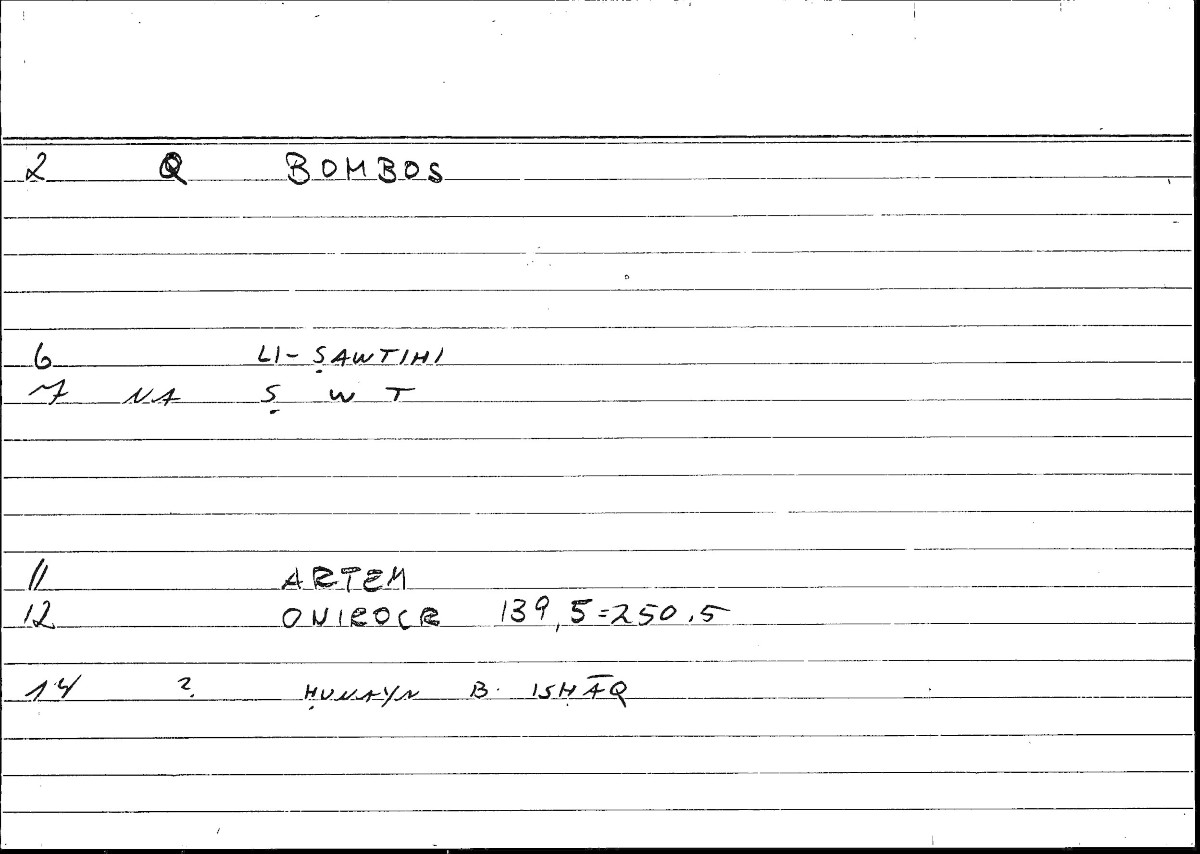 2 Q BOMBOS
6 LI-ṢAWTIHI
7 NA Ṣ W T
11 ARTEM
12 ONIROCR 139,5=250.5
14 ? ḤUNAYN B. ISḤĀQ